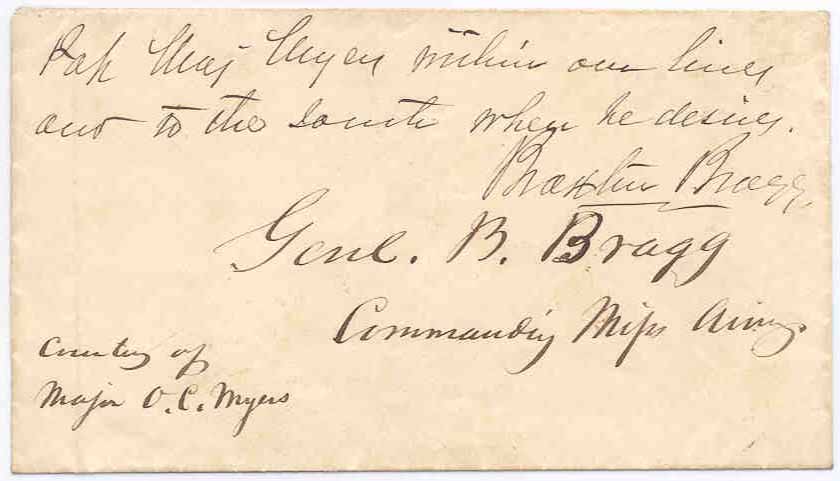 Pass Maj Myers within our lines
and to the South when he desires.
Braxton Bragg
Genl. B. Bragg
Commanding Miss Army
Courtesy of
Major O. C. Myers